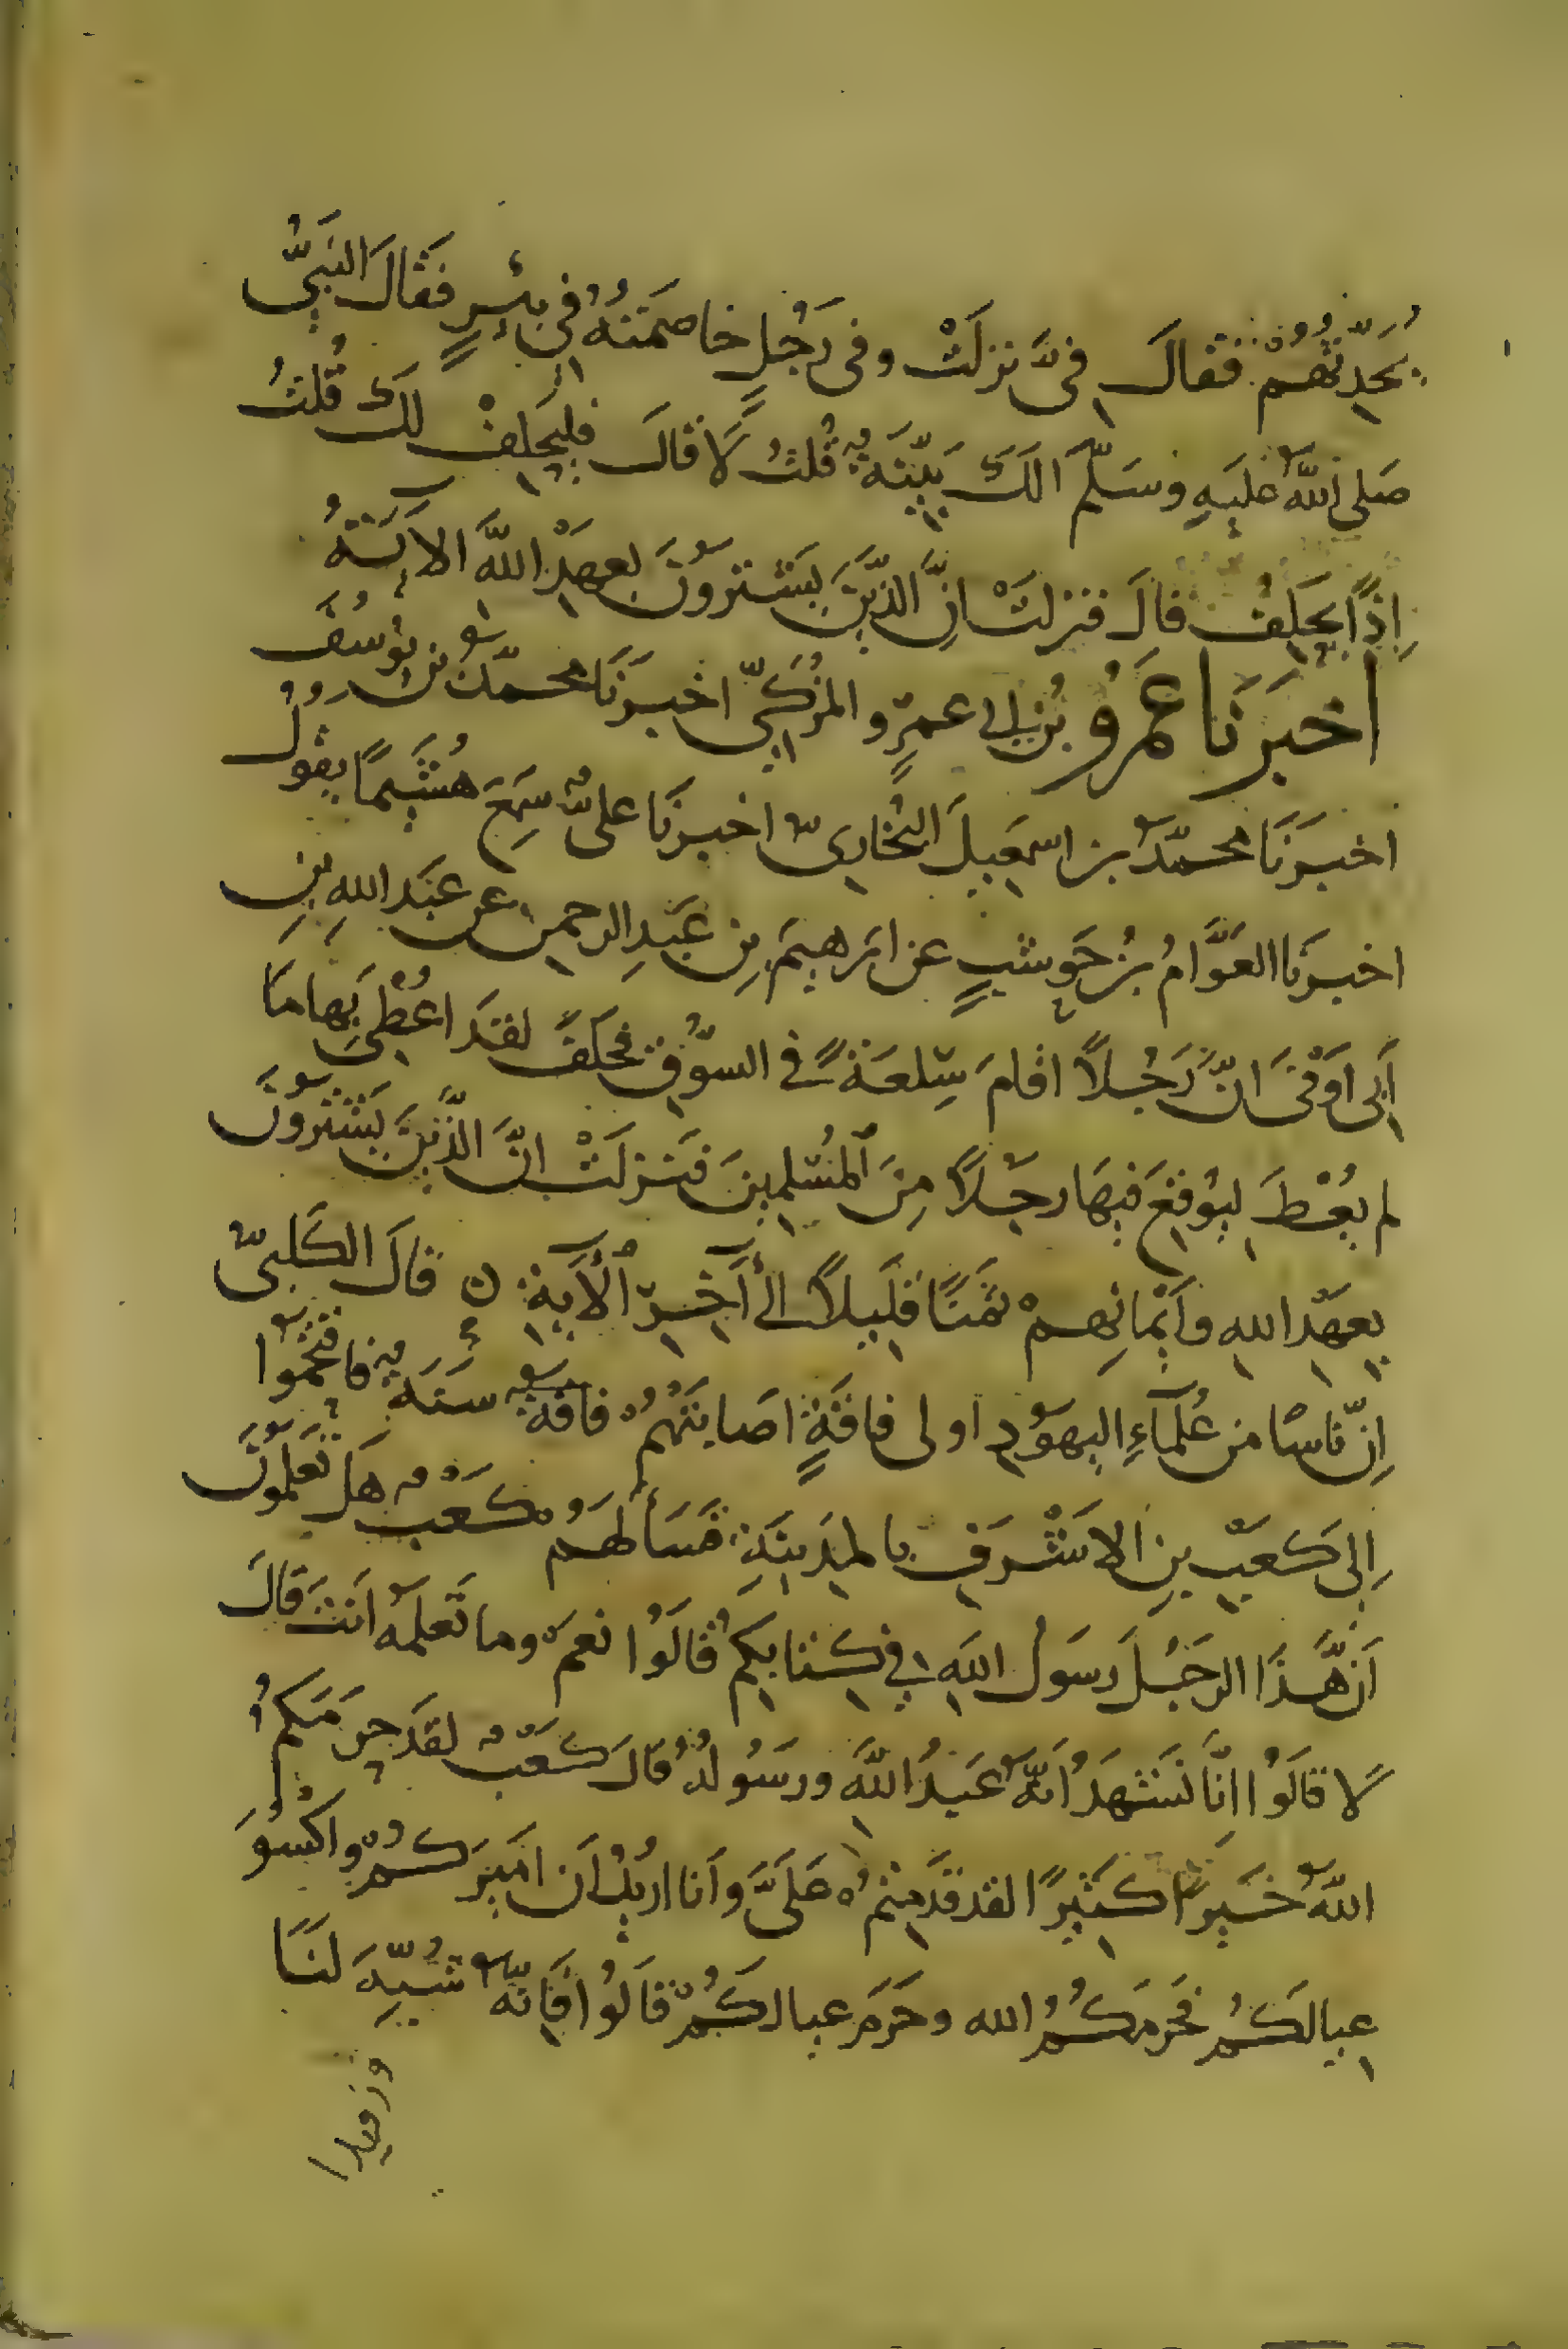 يُحَدِّثُهُمْ فقالَ فِىَّ نزلَتْ وفى رَجُلٍ خاصمَتُهُ فى بئرٍ فقالَ النبىُّ
صَلى اللهُ عليَهِ وسَلّمَ الَكَ بَيّنَةٌ قُلتُ لَا قالَ فليَحلِفْ لكَ قُلتُ
إذًا يحَلِفُ قالَ فنزلتْ انَّ الذّينَ يَشترونَ بعهدْ اللهَ الآيَتهُ
اخبرَنا عَمرُو بُن ابى عمرٍو المزُكىّ اخبَرنَا محمدُّ بن يوُسُفَ
اخبَرَنَا محمدُّ بن اسمعيلَ البُخارىّ اخبرنَا علىٌّ سِمَعَ هُشَيمًا يقوُلُ
اخبرَنا العَوَّامُ بنُ حَوشبٍ عن ابرَهيمَ بِن عَبدِ الرحمن عن عبَد اللهِ بنِ
اَبِى اوَفىَ انَّ رَجُلاً اقامَ سِلعَةً فى السوُّقِ فحلَفَ لقدَ اعُطِىَ بِها ما
لم يعُطَ ليوُقعَ فيهَا رجَلاً مِنَ المُسلِمينَ فنَزلَتْ انَّ الذّينَ يَشتروُنَ
بِعهَدِ اللهِ وأيْمانِهمْ ثمَنًا قَلِيلاً الى آخِرِ الآيةِ ن قالَ الكَلبىّ
اِنّ ناسًا من عُلَماءِ اليهوُدِ اولى فاقةٍ اصَابتَهُم فاقةٌ سنَة فاقتحمُوا
اِلى كَعبِ بنِ الاشْرَفِ بالمدِينَةِ فسَألهَمُ كَعَبٌ هَل تَعلموُنَ
اَنّ هَّذَا الرجَلَ رسَولُ اللهِ فى كِتابِكمُ قالَوُا نعمَ وما تَعلمَهُ اَنتَ قالَ
لا قالَوُا انّاَ نَشَهدُ اَنّهُ عَبدُ اللهَ ورسَوُلُهُ قالَ كَعَبٌ لقدَ حرَمَكمُ
اللهُ خَيرًا كَثيِرًا لقد قَدِمتمُ عَلَىَّ وَانا ارُيدُ اَن امَيرَكُمْ واكْسُوَ
عِيالَكُم فحَرمَكُمُ الله وحَرَمَ عيالكُمْ قالَوُا فَاِنّهُ شُبِّهَ لنَا